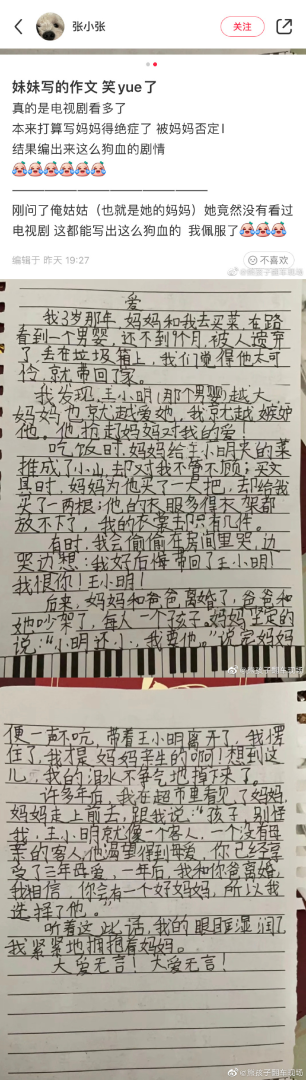 张小张
关注
妹妹写的作文 笑yue了
真的是电视剧看多了
本来打算写妈妈得绝症了 被妈妈否定l
结果编出来这么狗血的剧情
刚问了俺姑姑（也就是她的妈妈）她竟然没有看过
电视剧 这都能写出这么狗血的 我佩服了
编辑于 昨天 19:27
不喜欢
@熊孩子刹车现场
爱
我3岁那年，妈妈和我去买菜，在路
看到一个男婴，还不到9个月，被人遗弃
了，丢在垃圾箱上，我们觉得他太可
怜，就带回了家。
我发现，王小明(那个男婴)越大，
妈妈也就越爱她，我就越嫉妒
他。他抢走妈妈对我的爱！
吃饭时，妈妈给王小明夹的菜
推成了小山，却对我不管不顾；买文
具时，妈妈为他买了一大把，却只给我
买了一两根；他的衣服多得衣架都
放不下了，我的衣裳却只有几件。
有时，我会偷偷在房间里哭，边
哭边想：我好后悔带回了王小明！
我恨你！王小明！
后来，妈妈和爸爸离婚了，爸爸和
她吵架了，每人一个孩子。妈妈坚定的
说：“小明还小，我要他。”说完妈妈
@熊孩子刹车现场
便一声不吭，带着王小明离开了，我愣
住了，我才是妈妈亲生的啊！想到这
儿，我的泪水不争气地掉下来了。
许多年后，我在超市里看见了妈妈，
妈妈走上前去，跟我说：“孩子，别怪
我，王小明就像一个客人，一个没有母
亲的客人，他渴望得到母爱，你已经享
受了三年母爱，一年后，我和你爸离婚，
我相信，你会有一个好妈妈，所以我
选择了他。”
听着这些话，我的眼眶湿润了，
我紧紧地拥抱着妈妈。
大爱无言！大爱无言！
@熊孩子刹车现场